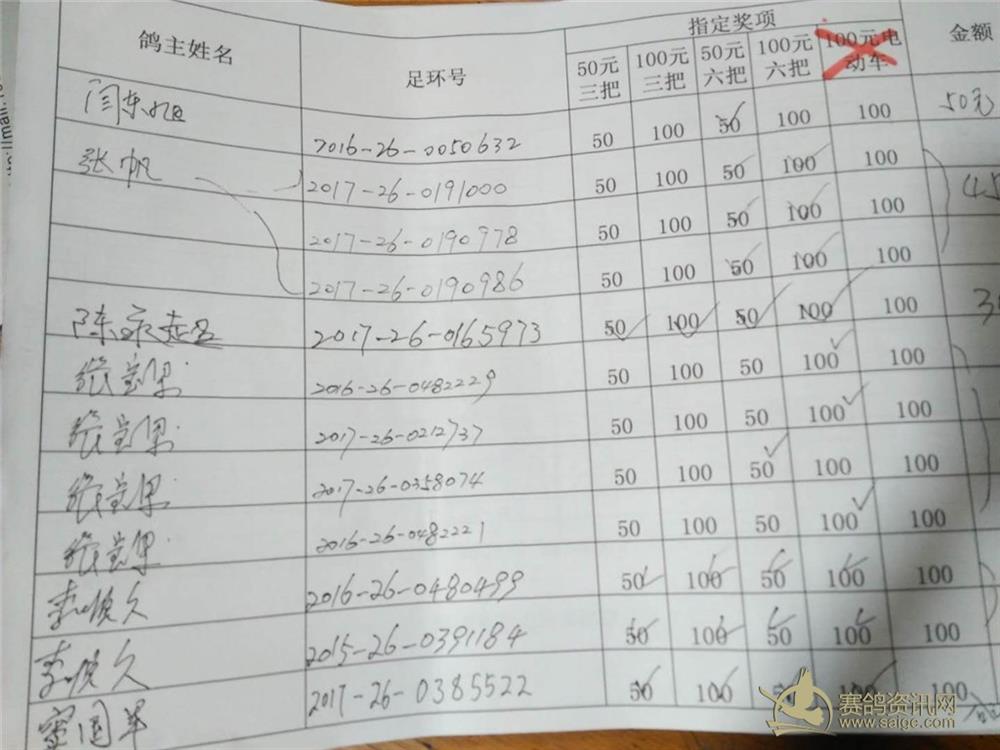 鸽主姓名 足环号 指定奖项 金额
50元三把 100元三把 50元六把 100元六把 100元电动车
闫东旭 2016-26-0050632 50 100 50 100 100 50元
张帆 2017-26-0191000 50 100 50 100 100
2017-26-0190978 50 100 50 100 100
2017-26-0190986 50 100 50 100 100
陈永起 2017-26-0165973 50 100 50 100 100
张宝 2016-26-0482229 50 100 50 100 100
张宝 2017-26-0212737 50 100 50 100 100
张宝 2017-26-0358074 50 100 50 100 100
张宝 2016-26-0482221 50 100 50 100 100
李俊久 2016-26-0480499 50 100 50 100 100
李俊久 2015-26-0391184 50 100 50 100 100
2017-26-0385522 50 100 50 100 100
赛鸽资讯网
www.saigc.com